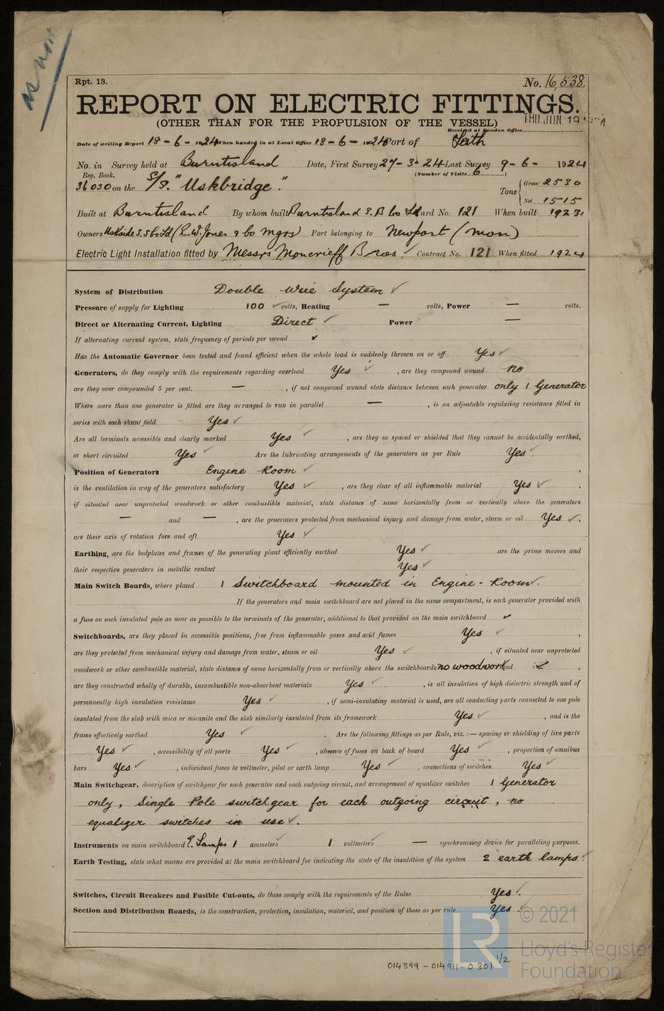 as now
Rpt. 13.
No. 16,538.
REPORT ON ELECTRIC FITTINGS.
(OTHER THAN FOR THE PROPULSION OF THE VESSEL)
Received at London Office THU. JUN 19 1924
Date of writing Report 18-6-1924 When handed in at Local Office 18-6-1924 Port of Leith
No. in Survey held at Burntisland Date, First Survey 27-3-24 Last Survey 9-6-1924
Reg. Book. (Number of Visits 6)
36030 on the S/S. "Uskbridge". Tons { Gross 2530
Net 1515
Built at Burntisland By whom built Burntisland S.B Co Ltd Yard No. 121 When built 1923
Owners Uskside S.S Co Ltd (R.W. Jones & Co Mgrs) Port belonging to Newport (Mon)
Electric Light Installation fitted by Messrs Moncrieff Bros. Contract No. 121 When fitted 1924
System of Distribution Double Wire System ✓
Pressure of supply for Lighting 100 ✓ volts, Heating — volts, Power — volts.
Direct or Alternating Current, Lighting Direct ✓ Power —
If alternating current system, state frequency of periods per second ✓
Has the Automatic Governor been tested and found efficient when the whole load is suddenly thrown on or off Yes ✓
Generators, do they comply with the requirements regarding overload Yes ✓ , are they compound wound no
are they over compounded 5 per cent. — , if not compound wound state distance between each generator only 1 Generator
Where more than one generator is fitted are they arranged to run in parallel — , is an adjustable regulating resistance fitted in
series with each shunt field Yes ✓
Are all terminals accessible and clearly marked Yes ✓ , are they so spaced or shielded that they cannot be accidentally earthed,
or short circuited Yes ✓ Are the lubricating arrangements of the generators as per Rule Yes ✓
Position of Generators Engine Room ✓ ,
is the ventilation in way of the generators satisfactory Yes ✓ , are they clear of all inflammable material Yes ✓ ,
if situated near unprotected woodwork or other combustible material, state distance of same horizontally from or vertically above the generators
— and — , are the generators protected from mechanical injury and damage from water, steam or oil Yes ✓ ,
are their axis of rotation fore and aft Yes ✓
Earthing, are the bedplates and frames of the generating plant efficiently earthed Yes ✓ are the prime movers and
their respective generators in metallic contact Yes ✓
Main Switch Boards, where placed 1 Switchboard mounted in Engine-Room ✓
If the generators and main switchboard are not placed in the same compartment, is each generator provided with
a fuse on each insulated pole as near as possible to the terminals of the generator, additional to that provided on the main switchboard ✓
Switchboards, are they placed in accessible positions, free from inflammable gases and acid fumes Yes ✓ ,
are they protected from mechanical injury and damage from water, steam or oil Yes ✓ , if situated near unprotected
woodwork or other combustible material, state distance of same horizontally from or vertically above the switchboards no woodwork and ✓ ,
are they constructed wholly of durable, incombustible non-absorbent materials Yes ✓ , is all insulation of high dielectric strength and of
permanently high insulation resistance Yes ✓ , if semi-insulating material is used, are all conducting parts connected to one pole
insulated from the slab with mica or micanite and the slab similarly insulated from its framework Yes ✓ , and is the
frame effectively earthed Yes ✓ Are the following fittings as per Rule, viz.:— spacing or shielding of live parts
Yes ✓ , accessibility of all parts Yes ✓ , absence of fuses on back of board Yes ✓ , proportion of omnibus
bars Yes ✓ , individual fuses to voltmeter, pilot or earth lamp Yes ✓ , connections of switches Yes ✓
Main Switchgear, description of switchgear for each generator and each outgoing circuit, and arrangement of equalizer switches 1 Generator
only, Single Pole switchgear for each outgoing circuit, no
equalizer switches in use ✓.
Instruments on main switchboard 1 ammeters ✓ 1 voltmeters ✓ — synchronising device for paralleling purposes.
Earth Testing, state what means are provided at the main switchboard for indicating the state of the insulation of the system 2 earth lamps ✓
Switches, Circuit Breakers and Fusible Cut-outs, do these comply with the requirements of the Rules Yes ✓
Section and Distribution Boards, is the construction, protection, insulation, material, and position of these as per rule Yes ✓
LR © 2021
Lloyd's Register
Foundation
014899-014911-0301 1/2